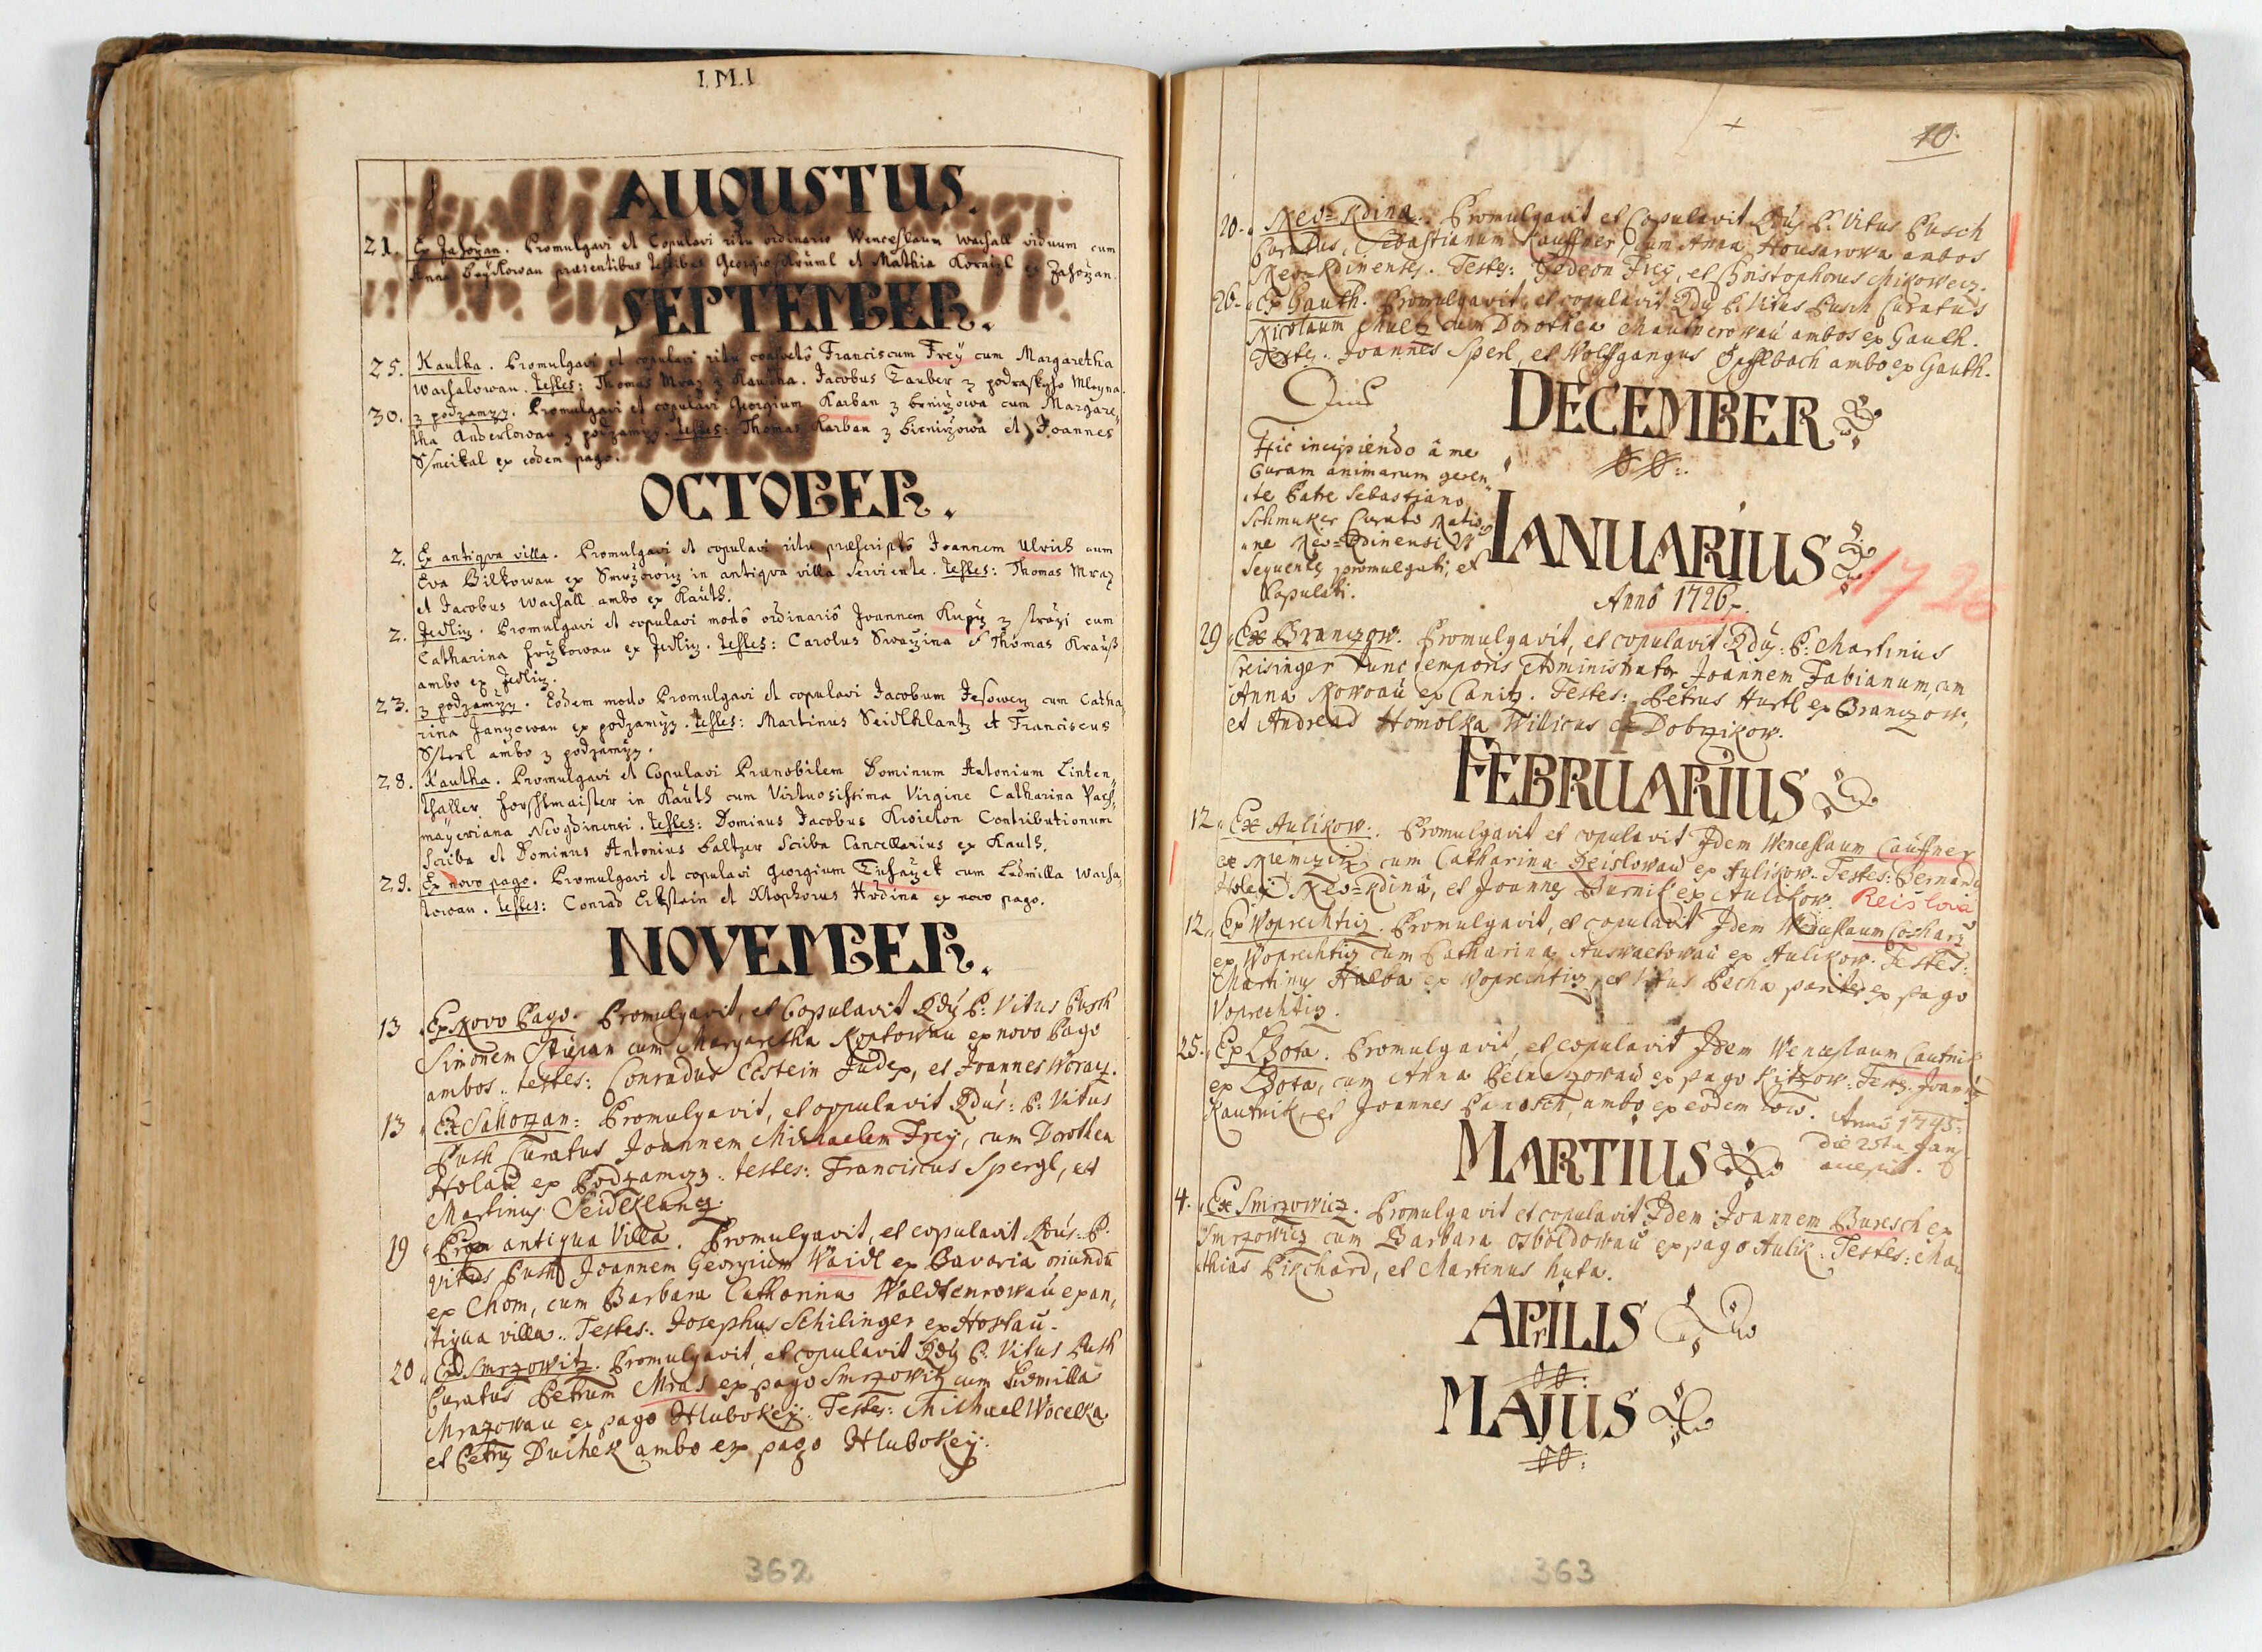 I.M.I
AUGUSTUS.
21. Ex Zahorzan. Promulgavi et Copulavi ritu ordinario Wenceslaum Wachall viduum cum
Anna praesentibus testibus Georgio Kruml et Mathia ex Zahorzan.
SEPTEMBER.
25. Kautha. Promulgavi et copulavi ritu consvetô Franciscum Frey cum Margaretha
Wachalowau. testes: Thomas Mraz z Kautha. Jacobus Tauber z podraskyho Mleyna.
30. z podzamczy. Promulgavi et copulavi Georgium Karban z cum Margare,
tha z podzamczy. testes: Thomas Karban z et Joannes
Smeikal ex eodem pago.
OCTOBER.
2. Ex antiqva villa. Promulgavi et copulavi ritu praescriptô Joannem Ulrich cum
Eva Bilkowau ex Smrzowicz in antiqva villa serviente. testes: Thomas Mraz
et Jacobus Wachall ambo ex Kauth.
2. Jedlicz. Promulgavi et copulavi modô ordinariô Joannem z cum
Catharina ex Jedlicz. testes: Carolus Swaczina et Thomas Krauß
ambo ex Jedlicz.
23. z podzamczy. Eodem modo Promulgavi et copulavi Jacobum cum Catha
rina Janzowau ex podzamczy. testes: Martinus Seidlklantz et Franciscus
ambo z podzamczy.
28. Kautha. Promulgavi et Copulavi Praenobilem Dominum Antonium Linten,
thaller forshtmaister in Kauth cum Virtuosissima Virgine Catharina
mayeriana Neogdinensi. testes: Dominus Jacobus Kwieton Contributionum
scriba et Dominus Antonius Baltzer Scriba Cancellarius ex Kauth.
29. Ex novo pago. Promulgavi et copulavi Georgium cum Ludmilla Wacha,
lowau. testes: Conrad Eckstein et Xtophorus Hrdina ex novo pago.
NOVEMBER.
13 Ex Novo Pago. Promulgavit, et Copulavit Rdus P: Vitus Pusch
Simonem Stiepan cum Margaretha ex novo Pago
ambos. testes: Conradus Ecstein Judex, et Joannes Woracz.
13 Ex Sahorzan: Promulgavit, et copulavit Rdus: P: Vitus
Push Curatus Joannem Michaelem Frey, cum Dorothea
Holau ex Podzamczy. testes: Franciscus Spergl, et
Martinus Seidlklanz.
19 antiqua Villa. Promulgavit, et copulavit Rdus. P.
Vitus Push Joannem Georgium Waidl ex Bavaria oriundu
ex Chom, cum Barbara Catharina ex an,
tiqua villa. Testes: Josephus Schilinger ex Hostau.
20 Smrzowitz. Promulgavit, et copulavit Rdus P. Vitus Push
Curatus Petrum Mras ex pago Smrzowitz cum Ludmilla
Mrazowau ex pago Hlubokey. Testes: Michael Wocelka
et Petrus Duchek ambo ex pago Hlubokey.
362
10.
20. Neo-Kdina. Promulgavit et Copulavit Rdus P. Vitus Pusch
Curatus, Sebastianum Kauffner, cum Anna Housarowa ambos
Neo-Kdinenses. Testes: Gedeon Frey, et Christophorus Mikowecz.
26. Ex Gauth. Promulgavit, et copulavit Rdus P. Vitus Pusch Curatus
Nicolaum Shultz cum Dorothea ambos ex Gauth.
Testes: Joannes Sperl, et Wolffgangus ambo ex Gauth.
DECEMBER
Hic incipiendo â me
Curam animarum geren
te Patre Sebastiano
Schmuker Curato Natio,
ne Neo-Kdinensi Ut
sequentes promulgati, et
Copulati.
IANUARIUS
1726
Annô 1726.
29 Ex Branczow. Promulgavit, et copulavit Rdus: P: Martinus
Creisinger tunc temporis Administrator Joannem Fabianum, cum
Anna Nowoau ex Canitz. Testes: Petrus Hurtl ex Branczow,
et Andreas Homolka Willicus ex Dobrzikow.
FEBRUARIUS
12. Ex Aulikow. Promulgavit et copulavit Idem Wenceslaum Cauffner
ex Niemczitz cum Catharina Reislowau ex Aulikow. Testes: Bernard
Holey Neo-Kdina, et Joannes Burnik ex Aulikow. Reislová
12. Ex Woprechtiz. Promulgavit, et copulavit Idem Wenceslaum
ex Woprechtiz cum Catharina ex Aulikow. Testes:
Martinus Halba ex Woprechtiz, et Vitus Pecha pariter ex pago
Voprechtiz.
25. Ex Lhota. Promulgavit, et copulavit Idem Wenceslaum Cautnik
ex Lhota, cum Anna ex pago Kitzow. Testes. Joannes
Kautnik, et Joannes ambo ex eodem loco.
Annô 1745.
die 25ta Jan.
MARTIUS
4. Ex Smrzowicz. Promulgavit et copulavit Idem Joannem Buresch ex
Smrzowicz cum Barbara Osboldowau ex pago Aulik: Testes: Ma
thias Pikhard, et Martinus huta.
APRILIS
MAJUS
363